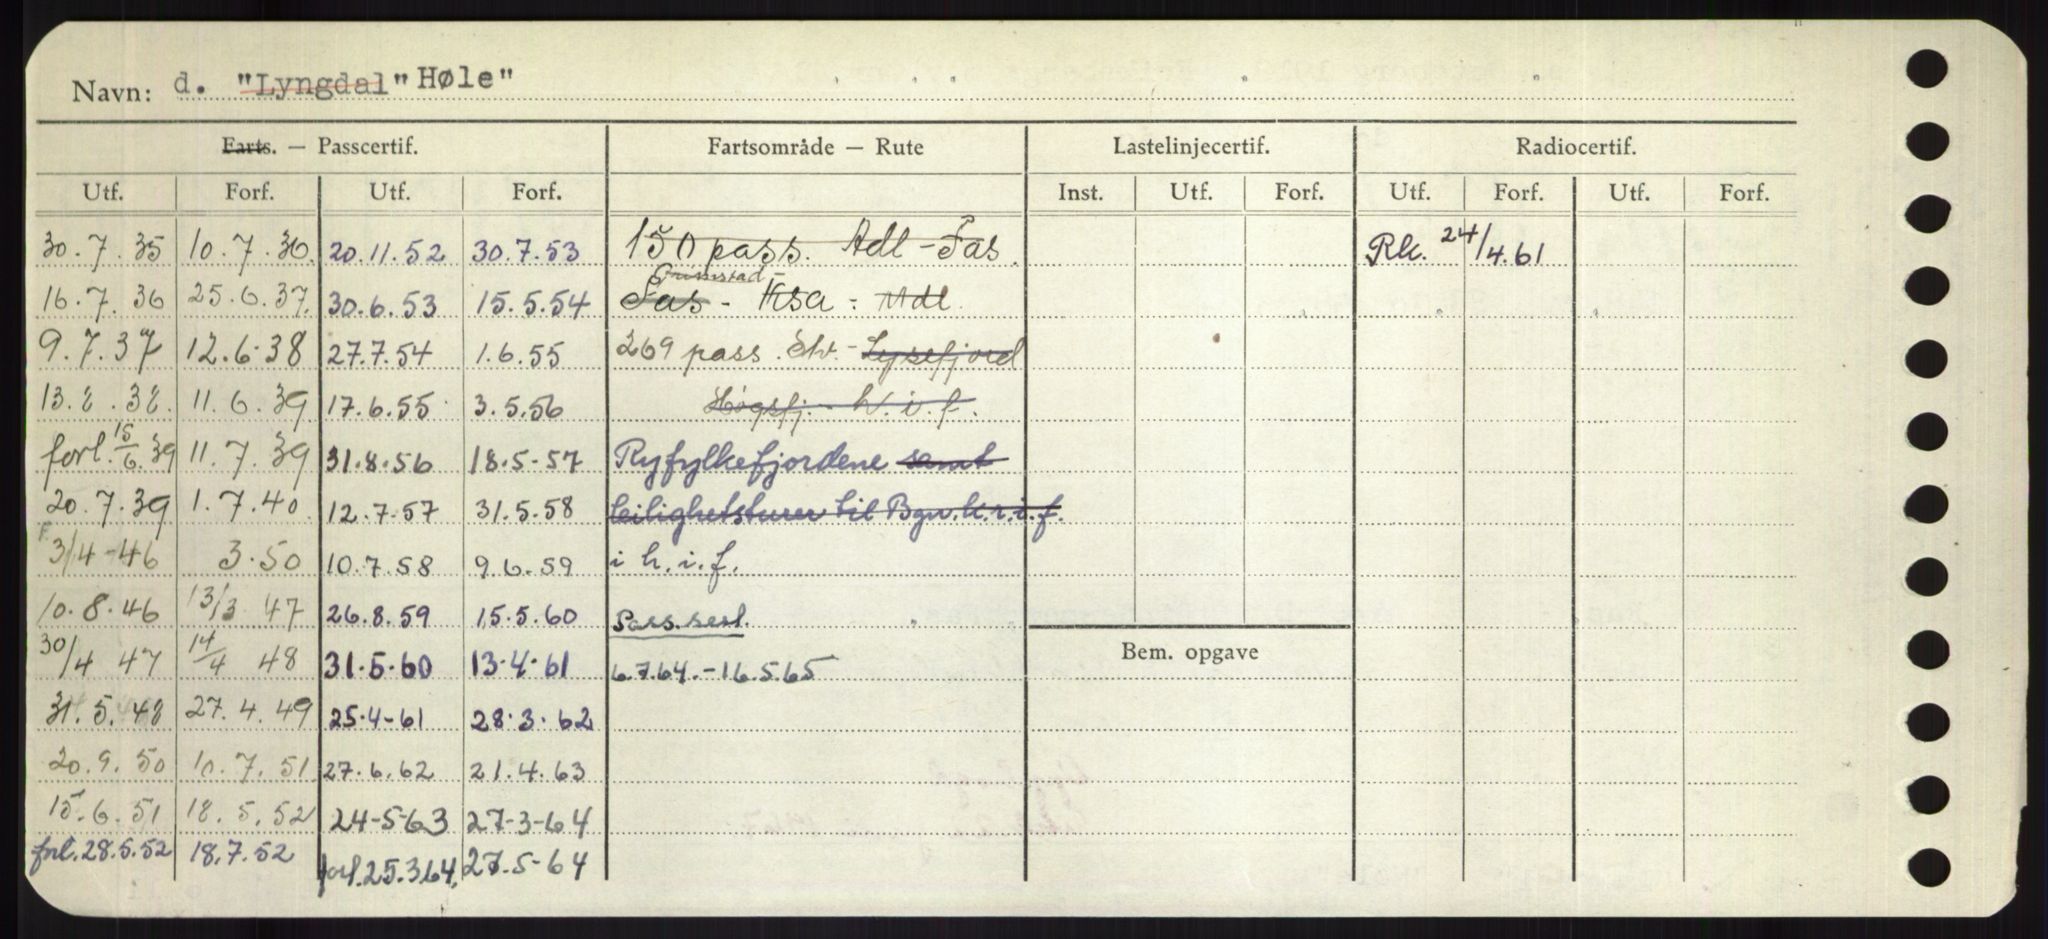 Navn: d. "Lyngdal" Høle"
Farts. — Passcertif. Fartsområde — Rute Lastelinjecertif. Radiocertif.
Utf. Forf. Utf. Forf. Inst. Utf. Forf. Utf. Forf. Utf. Forf.
30.7.35 10.7.36. 20.11.52 30.7.53 150 pass. Adl - Fas. Rk. 24/4.61
16.7.36 25.6.37. 30.6.53 15.5.54 Fas - Ksa - Mdl.
9.7.37 12.6.38 27.7.54 1.6.55 269 pass. Shv. - Lysefjord
13.8.38. 11.6.39 17.6.55 3.5.56 Høgsfj. - h.i.f.
forl. 15/6.39 11.7.39 31.8.56 18.5.57 Ryfylkefjordene samt
20.7.39 1.7.40 12.7.57 31.5.58 leilighetsturer til Bgn. k.r.i.f.
3/4-46 3.50 10.7.58 9.6.59 i h.i.f.
10.8.46 13/3 47 26.8.59 15.5.60 Pass.sert.
30/4 47 14/4 48 31.5.60 13.4.61 6.7.64.-16.5.65 Bem. opgave
31.5.48 27.4.49 25.4-61 28.3.62
20.9.50 10.7.51 27.6.62 21.4.63
15.6.51 18.5.52 24-5-63 27-3-64
forl. 28.5.52 18.7.52 forl. 25.3.64. 27.5-64